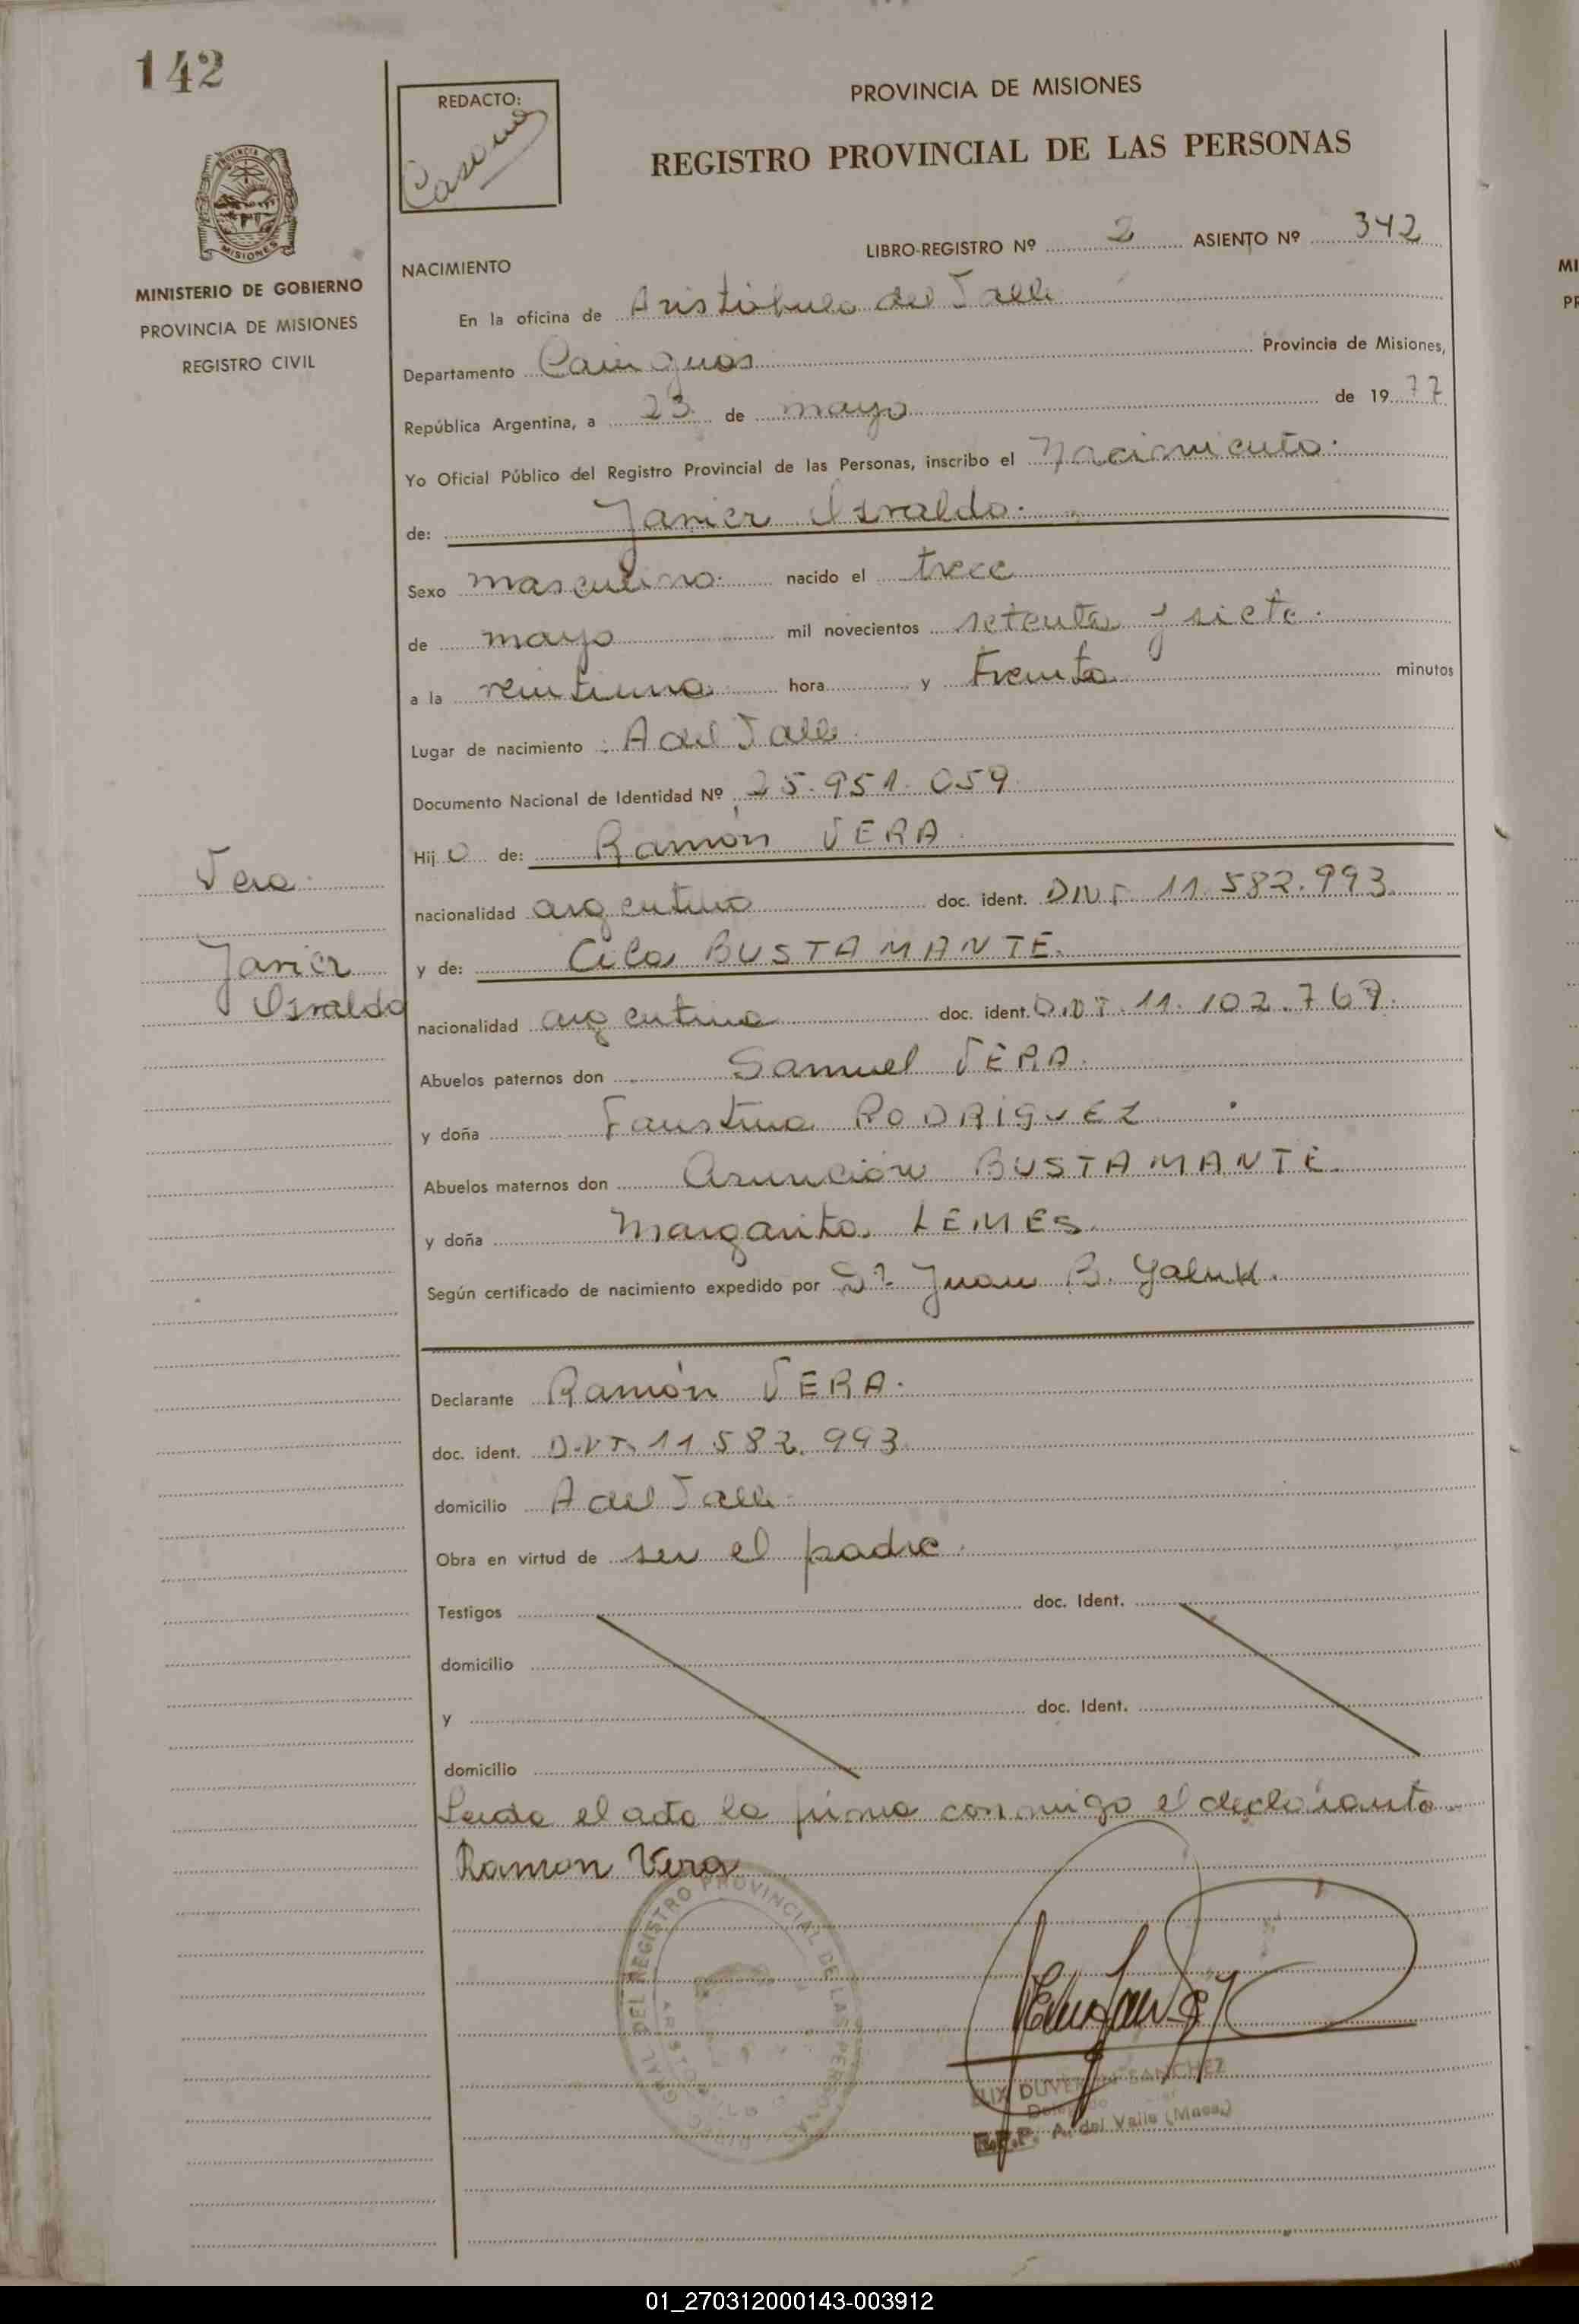 142
REDACTO:
PROVINCIA DE MISIONES
REGISTRO PROVINCIAL DE LAS PERSONAS
LIBRO-REGISTRO Nº 2 ASIENTO Nº 342
MINISTERIO DE GOBIERNO
PROVINCIA DE MISIONES
REGISTRO CIVIL
NACIMIENTO
En la oficina de Aristóbulo del Valle
Departamento Cainguás Provincia de Misiones,
República Argentina, a 23 de mayo de 1977
Yo Oficial Público del Registro Provincial de las Personas, inscribo el Nacimiento.
de: Javier Osvaldo.
Sexo masculino. nacido el trece
de mayo mil novecientos setenta y siete.
a la veintiuna hora y treinta minutos
Lugar de nacimiento : A del Valle.
Documento Nacional de Identidad Nº 25.951.059
Hijo de: Ramón VERA.
Vera.
nacionalidad argentino doc. ident. DNI 11.582.993
y de: BUSTAMANTE.
Javier
Osvaldo
nacionalidad argentina doc. ident. D.N.I. 11.102.767.
Abuelos paternos don Samuel VERA.
y doña Faustina RODRIGUEZ
Abuelos maternos don Asunción BUSTAMANTE.
y doña Margarita LEMES.
Según certificado de nacimiento expedido por Dr. Juan B. Yaluk.
Declarante Ramón VERA.
doc. ident. D.N.I. 11.582.993.
domicilio A del Valle.
Obra en virtud de ser el padre.
Testigos doc. Ident.
domicilio
y doc. Ident.
domicilio
Leida el acta la firma conmigo el declarante.
Ramon Vera
DEL REGISTRO PROVINCIAL DE LAS PERSONAS
SANCHEZ
A. del Valle (Mnes.)
01_270312000143-003912